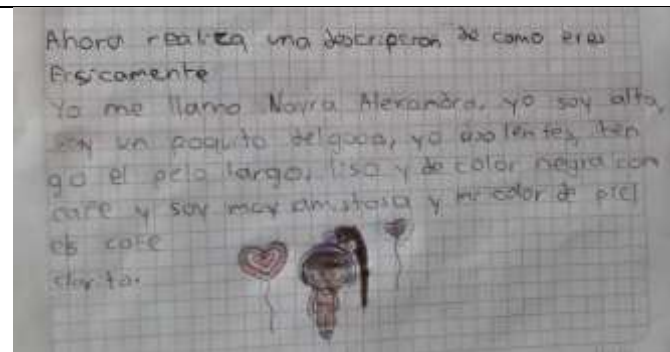 Ahora realiza una descripsion de como eres
Fisicamente
Yo me llamo Nayra Alexandra, yo soy alta,
soy un poquito delgada, yo uso lentes, ten
go el pelo largo, liso y de color negra con
cafe y soy muy amistosa y mi color de piel
es cafe
clarito.